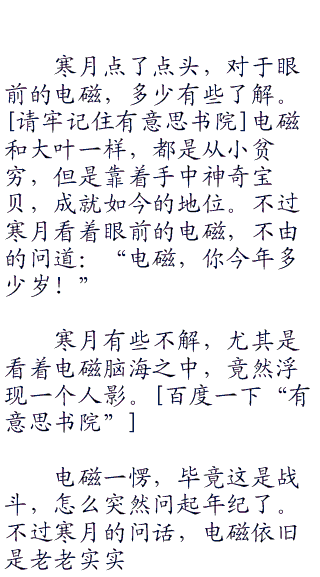 寒月点了点头，对于眼
前的电磁，多少有些了解。
[请牢记住有意思书院]电磁
和大叶一样，都是从小贫
穷，但是靠着手中神奇宝
贝，成就如今的地位。不过
寒月看着眼前的电磁，不由
的问道：“电磁，你今年多
少岁！”
寒月有些不解，尤其是
看着电磁脑海之中，竟然浮
现一个人影。[百度一下“有
意思书院”]
电磁一愣，毕竟这是战
斗，怎么突然问起年纪了。
不过寒月的问话，电磁依旧
是老老实实